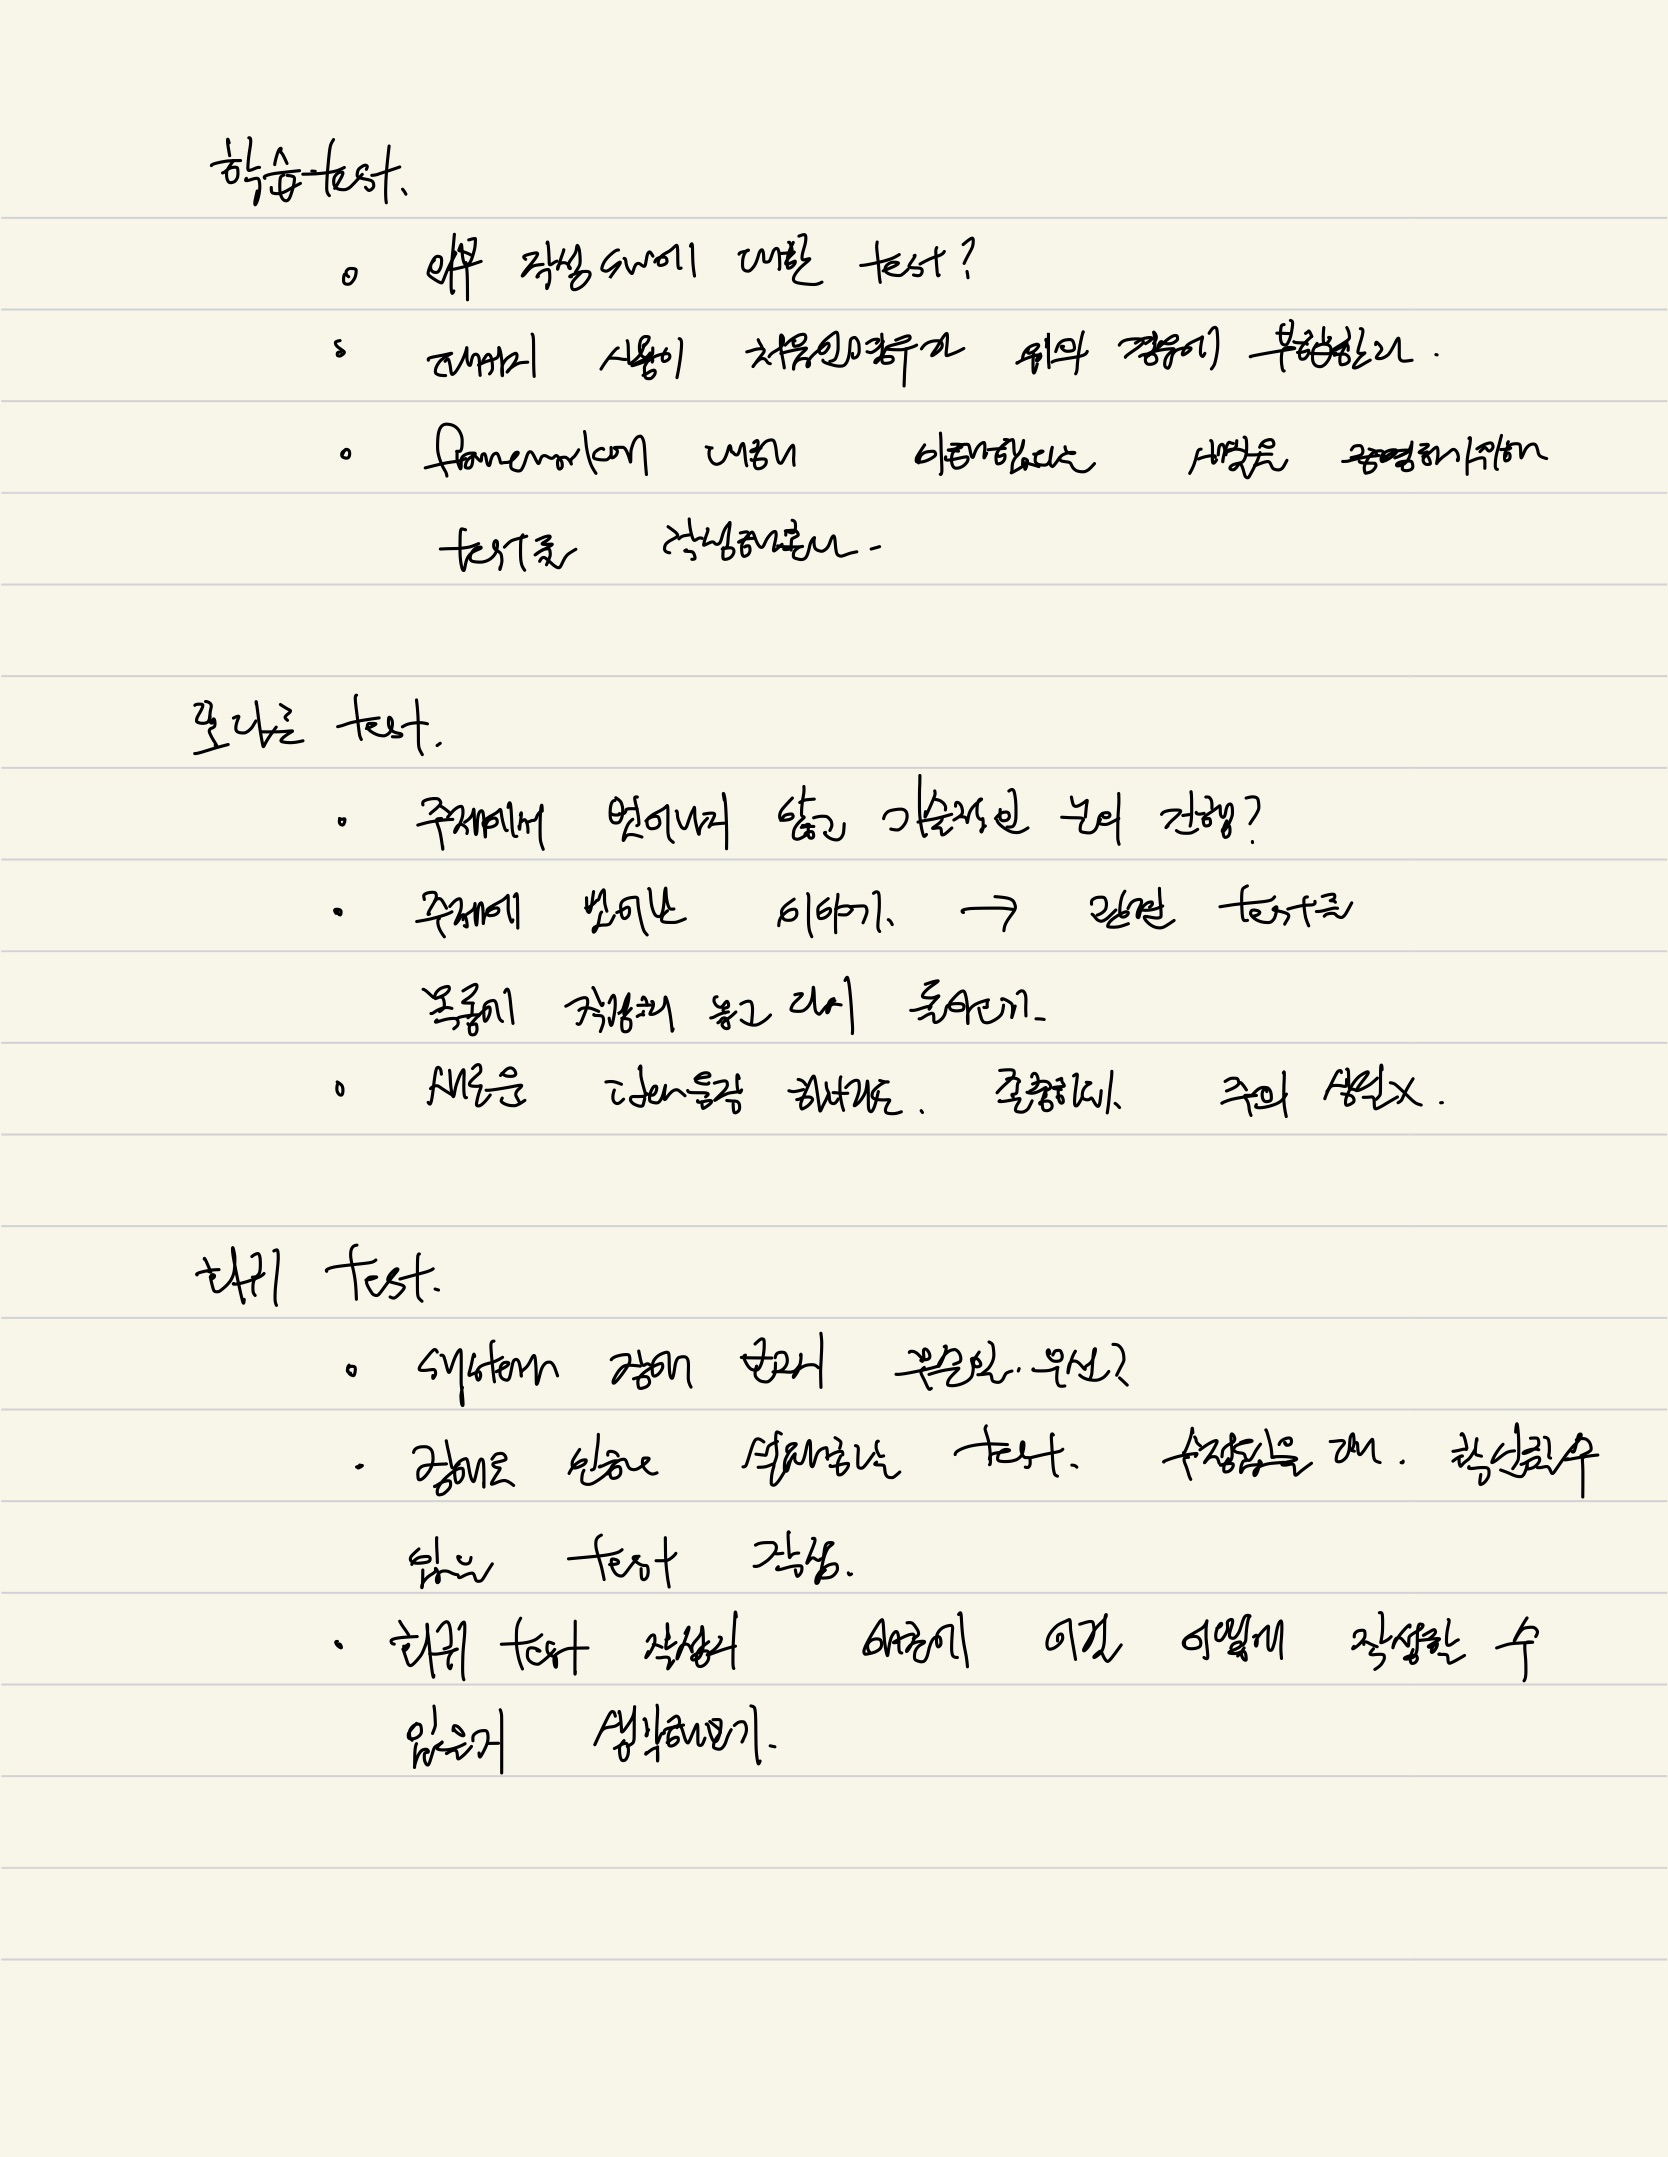 학습 test.
외부 작성 SW에 대한 test?
패키지 사용이 처음인 경우가 위의 경우에 부합한다.
framework에 대해 이해했다는 사실을 증명하기 위해
test를 작성해본다.
또다른 test.
주제에서 벗어나지 않고 기술적인 논의 진행?
주제에 벗어난 이야기. → 관련 test를
목록에 적어 놓고 다시 돌아간다.
새로운 idea 존중하되. 주의 상실X.
회귀 test.
system 장애 보고시 무슨일.. 우선?
장애로 인해 실패하는 test. 수정했을 때. 확신할 수
있는 test 작성.
회귀 test 작성시 애초에 이걸 어떻게 작성할 수
있는지 생각해보기.